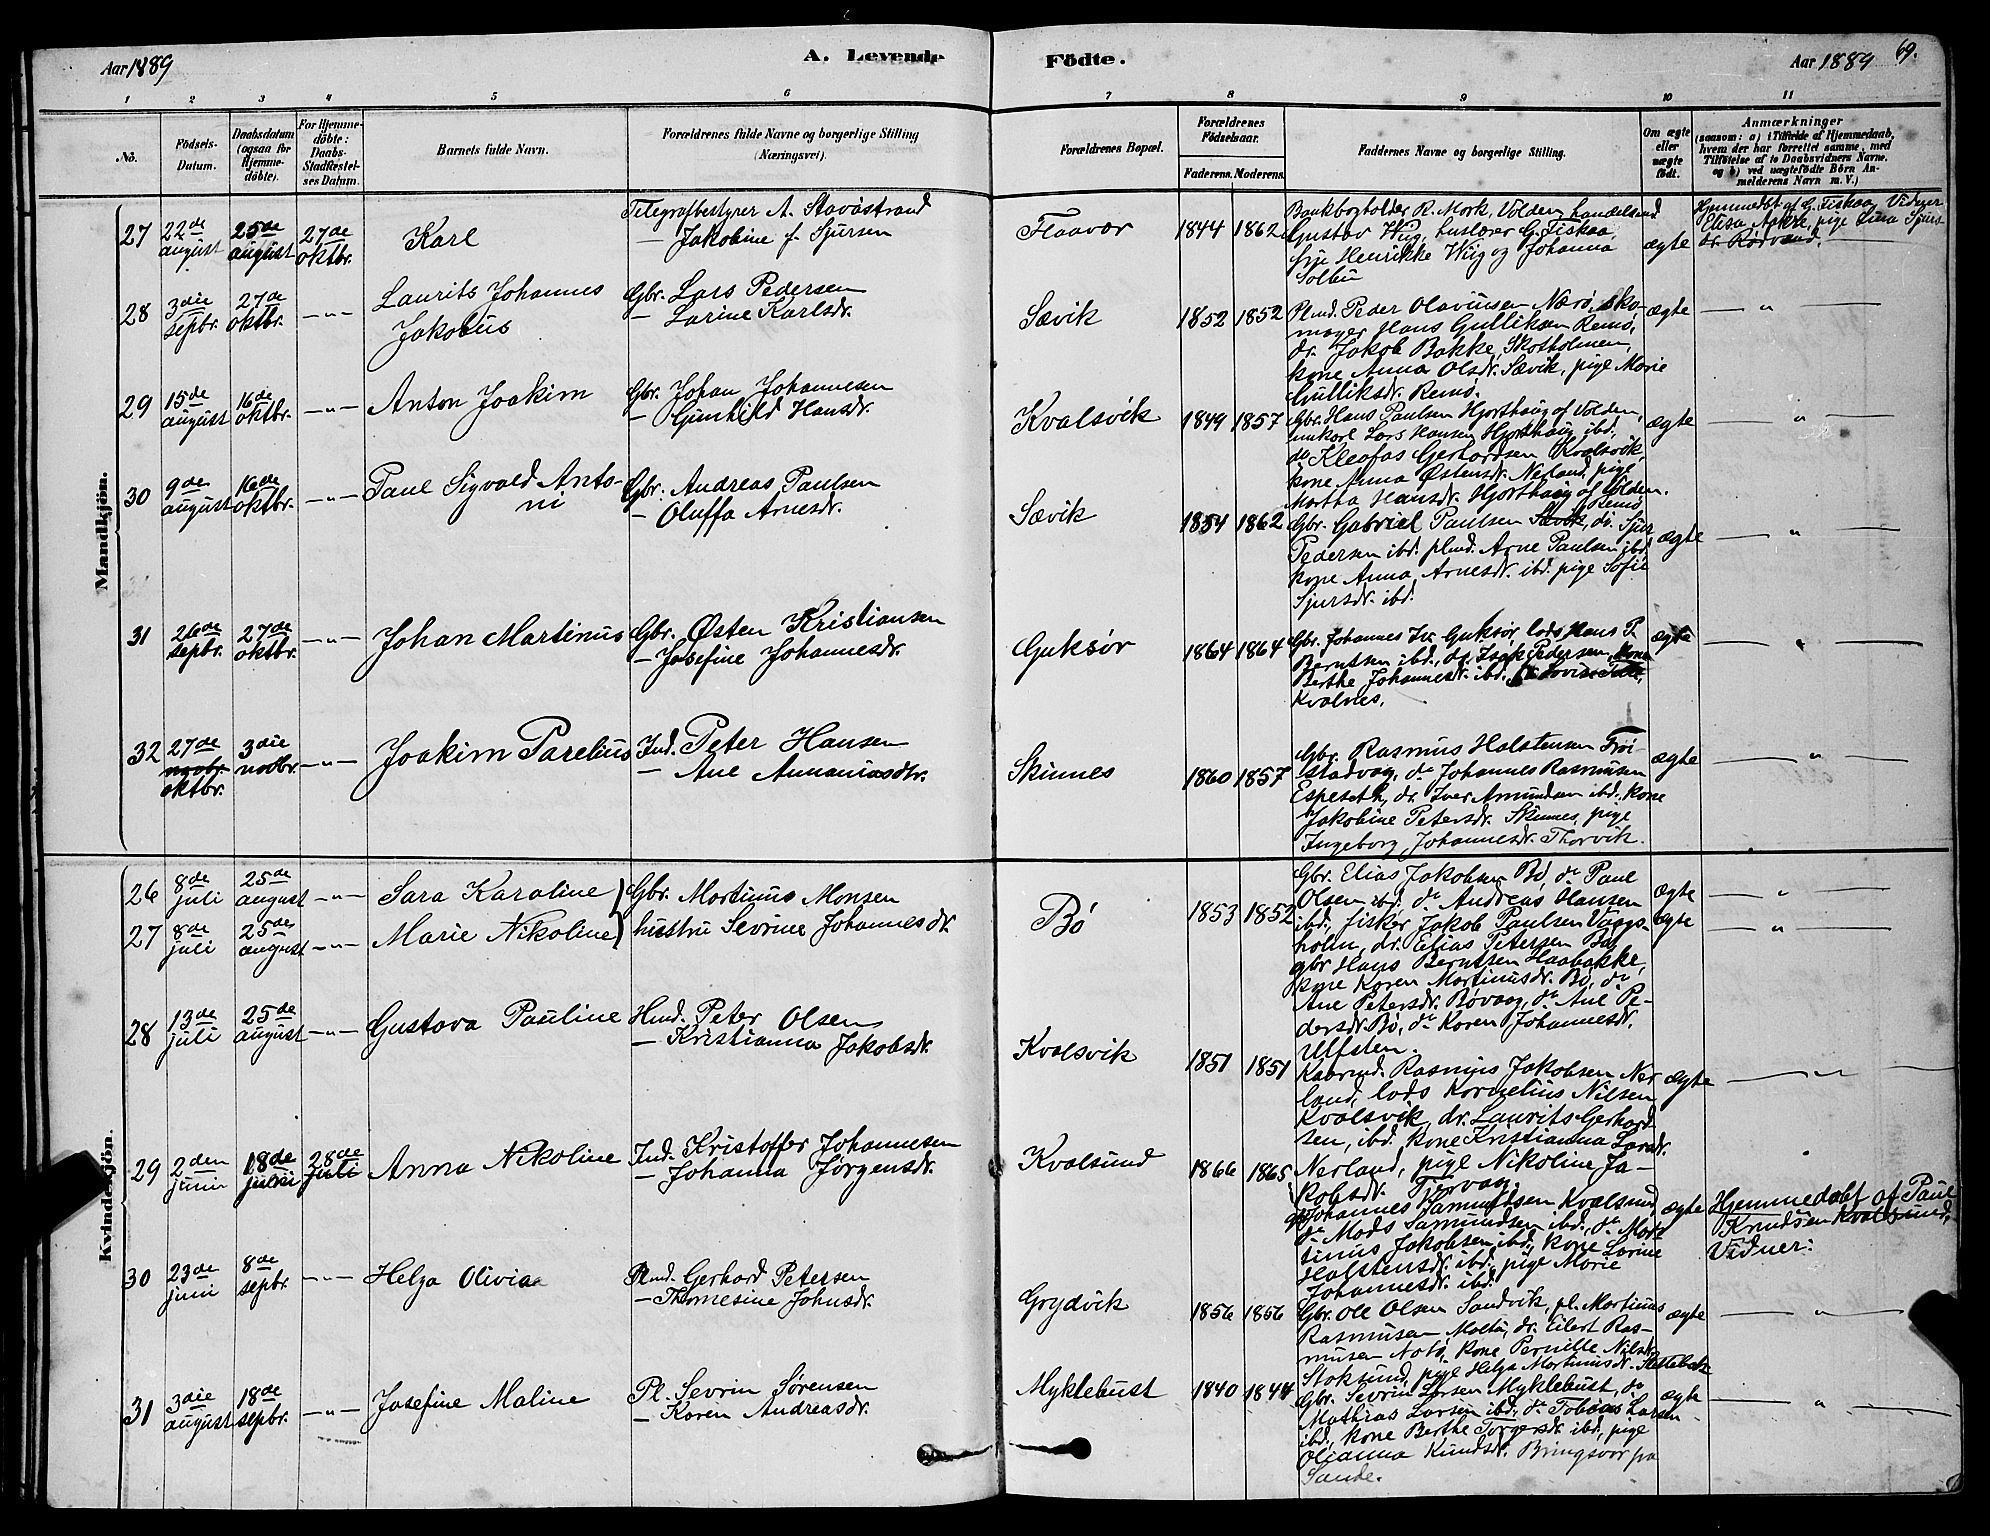 Aar 1889
A. Levende
Födte.
Aar 1889
69.
1 2 3 4 5 6 7 8 9 10 11
No.
Födsels-
Datum.
Daabsdatum
(ogsaa for
Hjemme-
döbte).
For Hjemme-
döbte:
Daabs-
Stadfæstel-
ses Datum.
Barnets fulde Navn.
Forældrenes fulde Navne og borgerlige Stilling
(Næringsvei).
Forældrenes Bopæl.
Forældrenes
Födselsaar.
Faderens. Moderens.
Faddernes Navne og borgerlige Stilling.
Om ægte
eller
uægte
födt.
Anmærkninger
(saasom: a) i Tilfælde af Hjemmedaab,
hvem der har forrettet samme, med
Tilföielse af to Daabsvidners Navne,
og b) ved uægtefödte Börn An-
melderens Navn m. V.)
Mandkjön.
27
22de
august
25de
august
27de
oktbr.
Karl
Telegrafbestyrer A. Stavöstrand
— Jakobine f. Sjursen
Flaavær
1844 1862
Bankbogholder R. Mork, Volden, handelsmd
Gustav Wiig, huslærer G. Fiskaa
Henrikke Wiig og Johanna
Solbu
ægte
Hjemmedbt af G. Fiskaa Vidner
Elisa Aakre, pige Lina Sjurs-
dr. Rödvand.
28
3die
septbr.
27de
oktbr.
— " —
Laurits Johannes
Jakobus
Gbr. Lars Pedersen
— Larine Karlsdr.
Sævik
1852 1852
Plmd. Peder Olavusen Nærö, sko-
mager Hans Gulliksen Remö,
dr. Jakob Bakke, Skotholmen,
kone Anna Olsdr. Sævik, pige Marie
Gulliksdr. Remö.
ægte
— " —
29
15de
august
16de
oktbr.
— " —
Anton Joakim
Gbr. Johan Johannesen
— Gunhild Hansdr.
Kvalsvik
1849 1857
Gbr. Hans Paulsen Hjorthaug af Volden,
unkarl Lars Hansen Hjorthaug ibd.
do Kleofas Gerhardsen Kvalsvik,
kone Anna Østensdr. Nerland, pige
Martha Hansdr. Hjorthaug af Volden.
ægte
— " —
30
9de
august
16de
oktbr.
— " —
Paul Sigvald Anto-
ni
Gbr. Andreas Paulsen
— Oluffa Arnesdr.
Sævik
1854 1862
Remö
Gbr. Gabriel Paulsen Sævik, dr. Sjur
Pedersen ibd. plmd. Arne Paulsen ibd.
kone Anna Arnesdr. ibd. pige Sofie
Sjursdr. ibd.
ægte
— " —
31
26de
septbr.
27de
oktbr.
— " —
Johan Martinus
Gbr. Østen Kristiansen
— Josefine Johannesdr.
Guksör
1864 1864
Gbr. Johannes Iv. Guksör, lods Hans P.
Berntsen ibd., dr. Isak Pedersen, kone
Berthe Johannesdr. ibd.
Kvalnes.
ægte
— " —
32
27de
novbr.
oktbr.
3die
novbr.
— " —
Joakim Parelius
Ind. Peter Hansen
— Ane Annaniasdtr.
Skinnes
1860 1857
Gbr. Rasmus Halstensen Fröi-
stadvaag, do Johannes Rasmusen
Espeseth, dr. Iver Amundsen ibd. kone
Jakobine Petersdr. Skinnes, pige
Ingeborg Johannesdr. Thorvik.
ægte
— " —
Kvindekjön.
26
8de
juli
25de
august
— " —
Sara Karoline
27
8de
juli
25de
august
— " —
Marie Nikoline
Gbr. Martinus Monsen
hustru Sevrine Johannesdr.
Bö
1853 1852
Gbr. Elias Jakobsen Bö, do Paul
Olsen ibd. do Andreas Hansen
ibd., fisker Jakob Paulsen Vaags-
holm, dr. Elias Petersen Bö,
gbr. Hans Berntsen Haabakke,
kone Karen Martinusdr. Bö, do
Ane Petersdr. Bövaag, do Ane Pe-
dersdr. Bö, do Karen Johannesdr.
Ulfsten.
ægte
ægte
— " —
— " —
28
13de
juli
25de
august
— " —
Gustava Pauline
Hmd. Peter Olsen
— Kristianna Jakobsdr.
Kvalsvik
1851 1851
Kaarmd. Rasmus Jakobsen Ner-
land, lods Kornelius Nilsen
Kvalsvik, dr. Laurits Gerhard-
sen, ibd. kone Kristianna Larsdr.
Nerland, pige Nikoline Ja-
kobsdr. Tjervaag.
ægte
— " —
29
2den
juni
18de
juni
28de
juli
Anna Nikoline
Ind. Kristoffer Johannesen
— Johanna Jörgensdr.
Kvalsund
1866 1865
Gbr. Johannes Samundsen Kvalsund
do Mads Samundsen ibd., do Mar-
tinus Jakobsen ibd., kone Larine
Halstensdr. ibd. pige Marie
Johannesdr. ibd.
ægte
Hjemmedöbt af Paul
Knudsen Kvalsund,
Vidner:
30
23de
juni
8de
septbr.
— " —
Helga Olivia
Plmd. Gerhard Petersen
— Thomesine Johnsdr.
Grydvik
1856 1856
Gbr. Ole Olsen Sandvik, pl. Martinus
Rasmusen Moltu, dr. Eilert Ras-
musen Notö, kone Pernille Nilsdr.
Stoksund, pige Helga Martinusdr.
ægte
— " —
31
3die
august
18de
septbr.
— " —
Josefine Maline
Pl. Sevrin Sørensen
— Karen Andreasdr.
Myklebust
1840 1844
Gbr. Sevrin Larsen Myklebust, do
Mathias Larsen ibd. do Tobias Larsen
ibd., kone Berthe Torgersdr. ibd., pige
Olianna Knudsdr. Bringsvor pa
Sande.
ægte
— " —